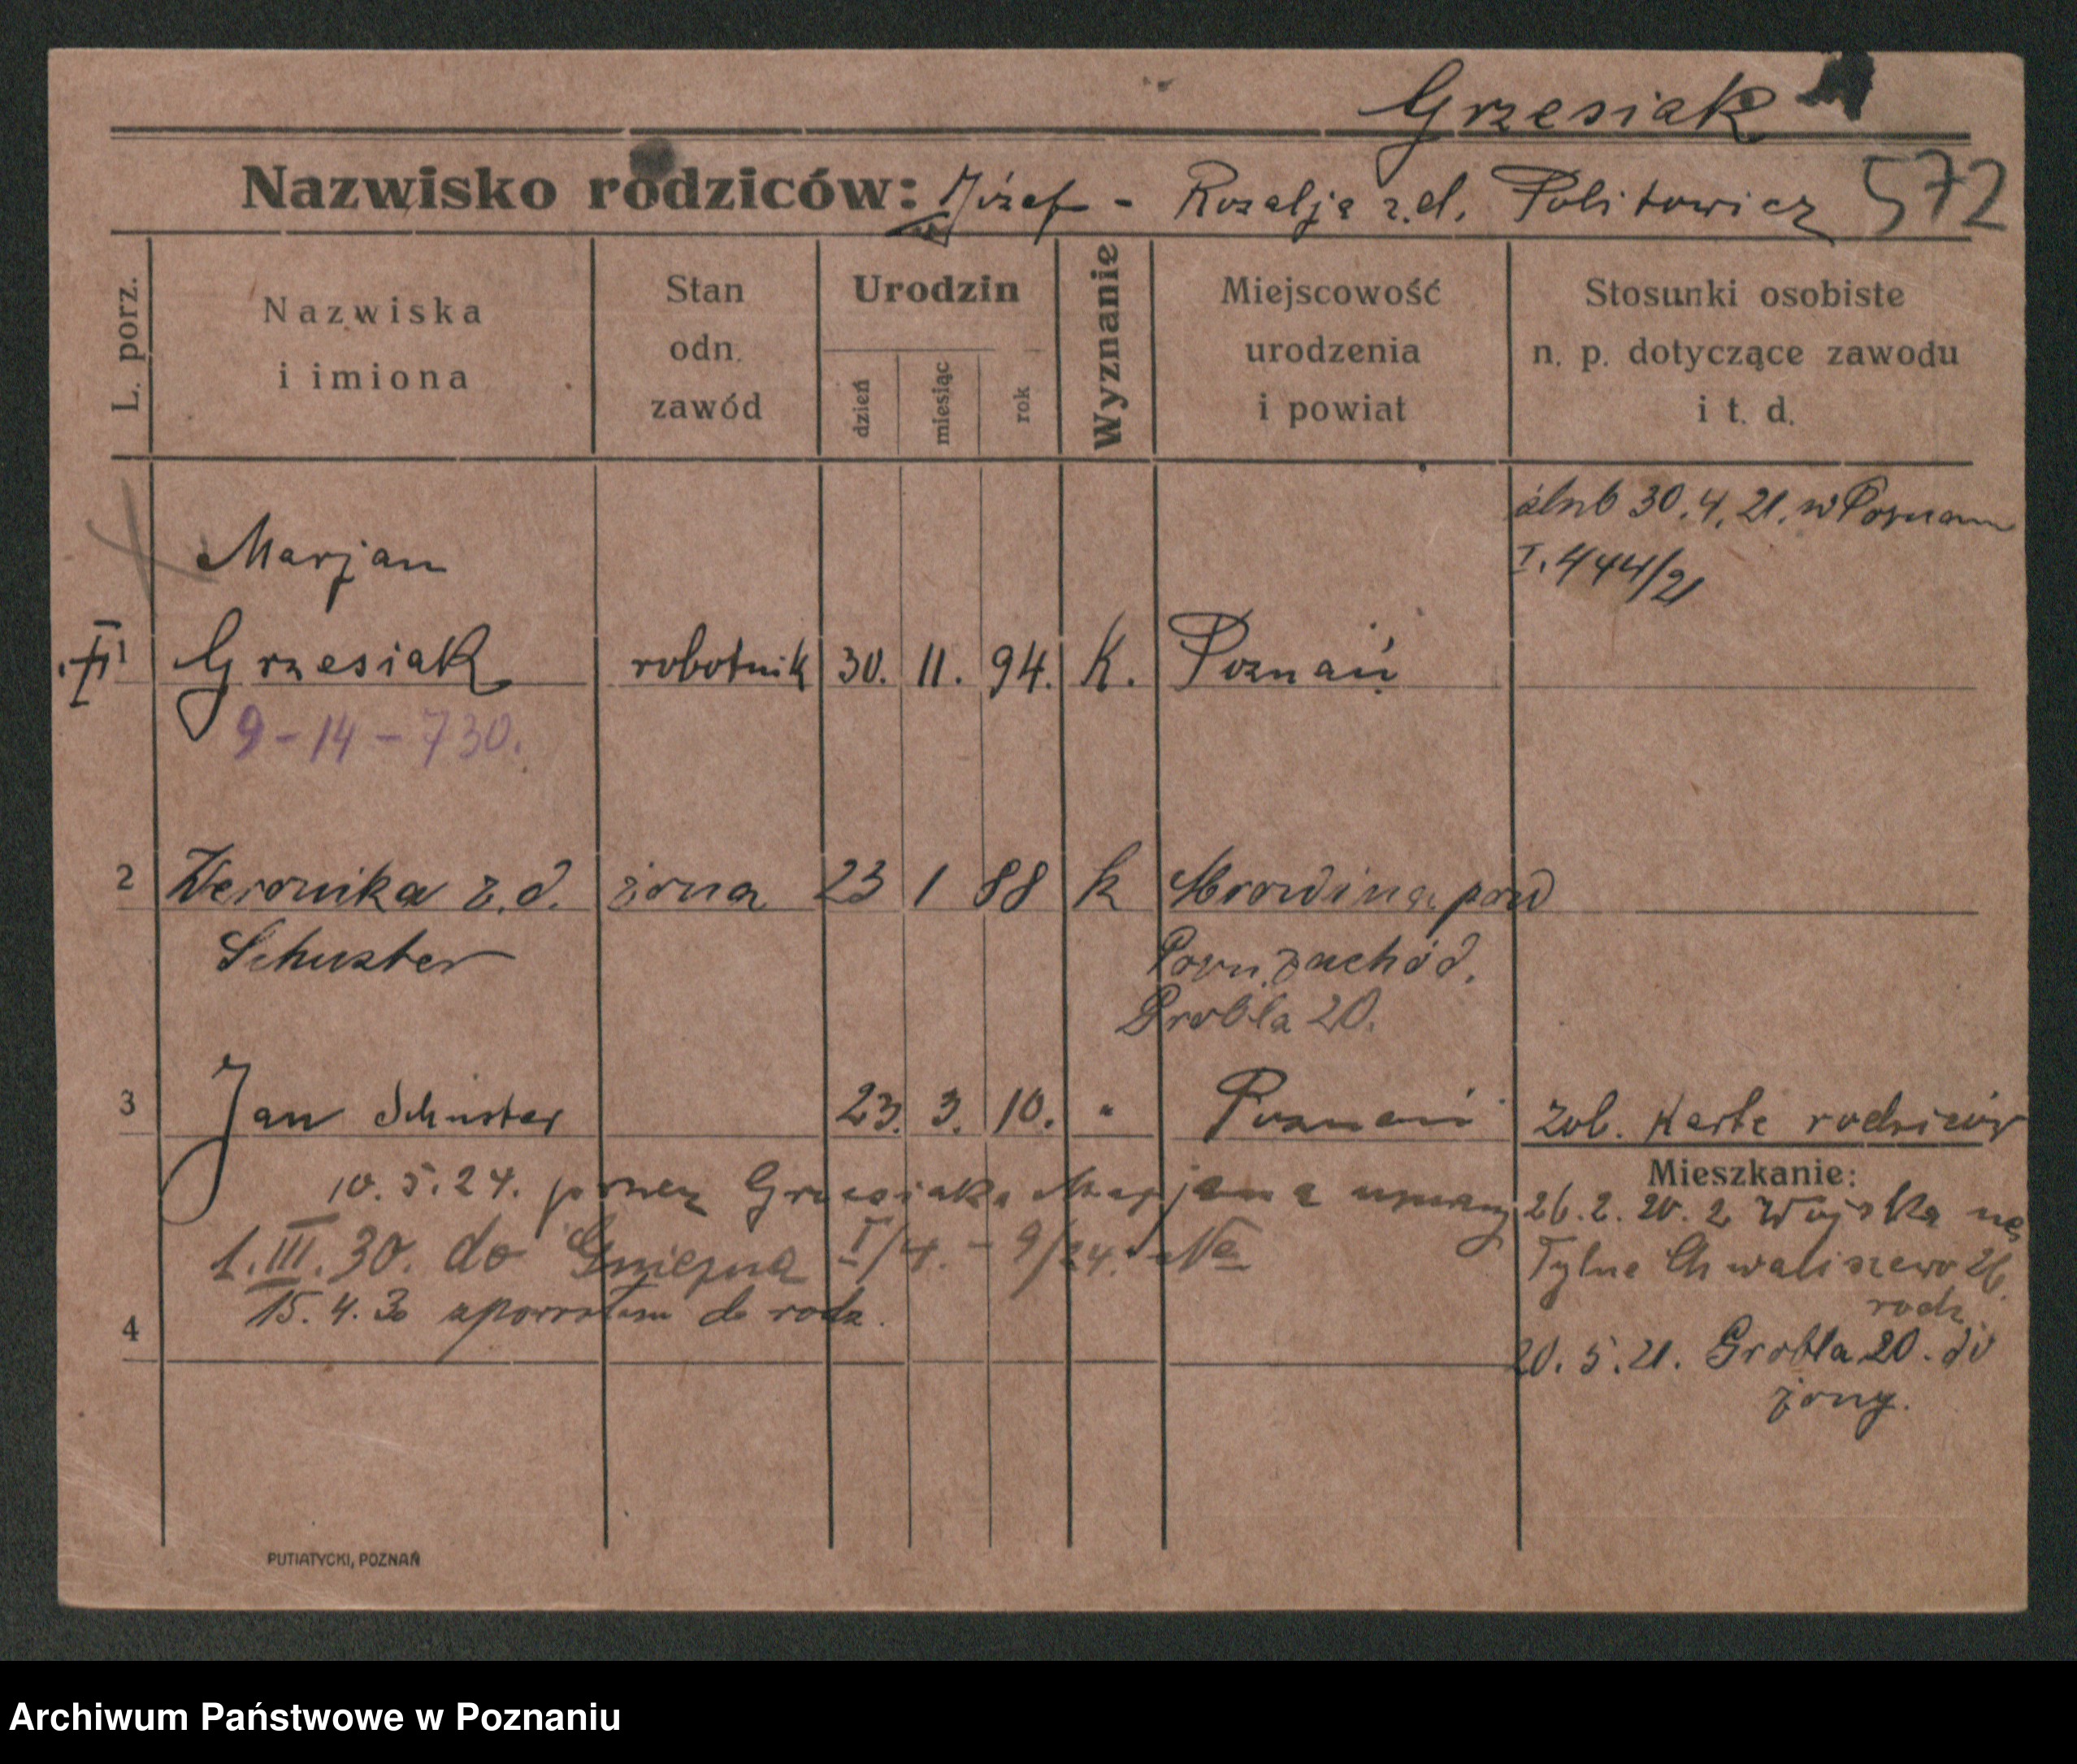 Grzesiak
Nazwisko rodziców: Józef - Rozalja z.d. Politowicz 572
L. porz.
Nazwiska
i imiona
Stan
odn.
zawód
Urodzin
dzień
miesiąc
rok
Wyznanie
Miejscowość
urodzenia
i powiat
Stosunki osobiste
n. p. dotyczące zawodu
i t. d.
ślub 30.4.21. w Poznaniu
I. 444/21
Marjan
1 Grzesiak robotnik 30. 11. 94. K. Poznań
9-14-730.
2 Weronika z.d. żona 23 1 88 k Mrowina pow
Schuster Pozn. zachód.
Grobla 20.
3 Jan Schuster 23. 3. 10. " Poznań Zob. Karte rodziców
Mieszkanie:
10.5.24. przez Grzesiaka Marjana uznany
26.2.20. z Wojska na
1.III.30. do Gniezna I/4. - 9/24.
Tylne Chwaliszewo 26.
rodz.
15.4.30 zpowrotem do rodz.
4
20.5.21. Grobla 20. do
żony.
PUTIATYCKI, POZNAŃ
Archiwum Państwowe w Poznaniu